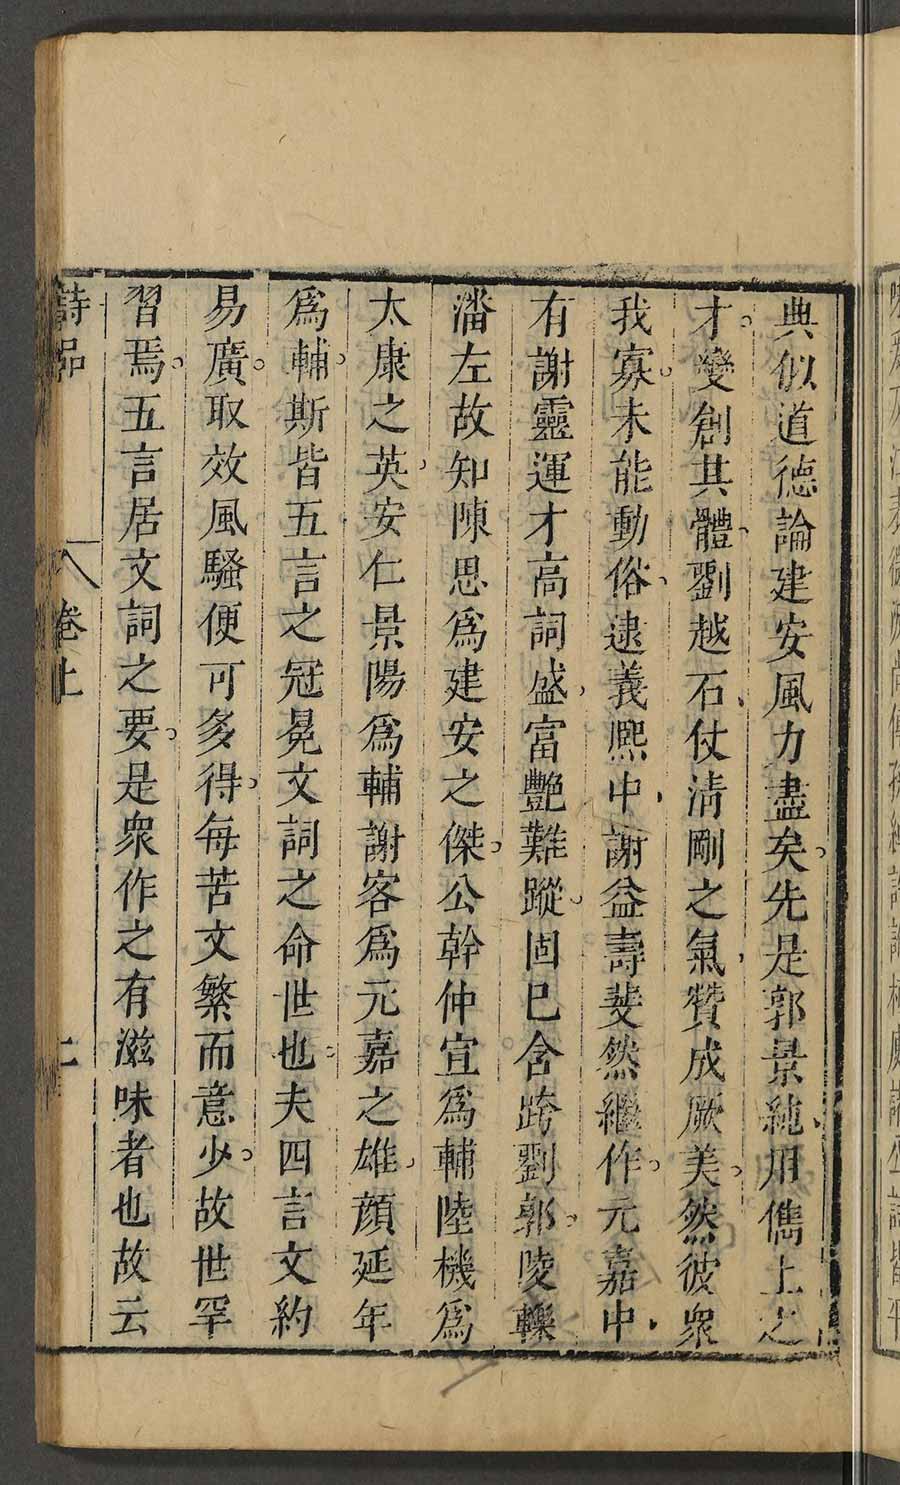 典似道德論建安風力盡矣。先是郭景純用儁上之
才。變創其體。劉越石仗淸剛之氣贊成厥美。然彼衆
我寡。未能動俗。逮義熙中謝益壽斐然繼作。元嘉中
有謝靈運才高詞盛富艷難蹤。固已含跨劉郭。陵轢
潘左故知陳思爲建安之傑。公幹仲宣爲輔陸機爲
太康之英安仁景陽爲輔謝客爲元嘉之雄顔延年
爲輔。斯皆五言之冠冕文詞之命世也。夫四言文約
易廣。取效風騷便可多得。每苦文繁而意少。故世罕
習焉。五言居文詞之要。是衆作之有滋味者也故云
詩品 卷上